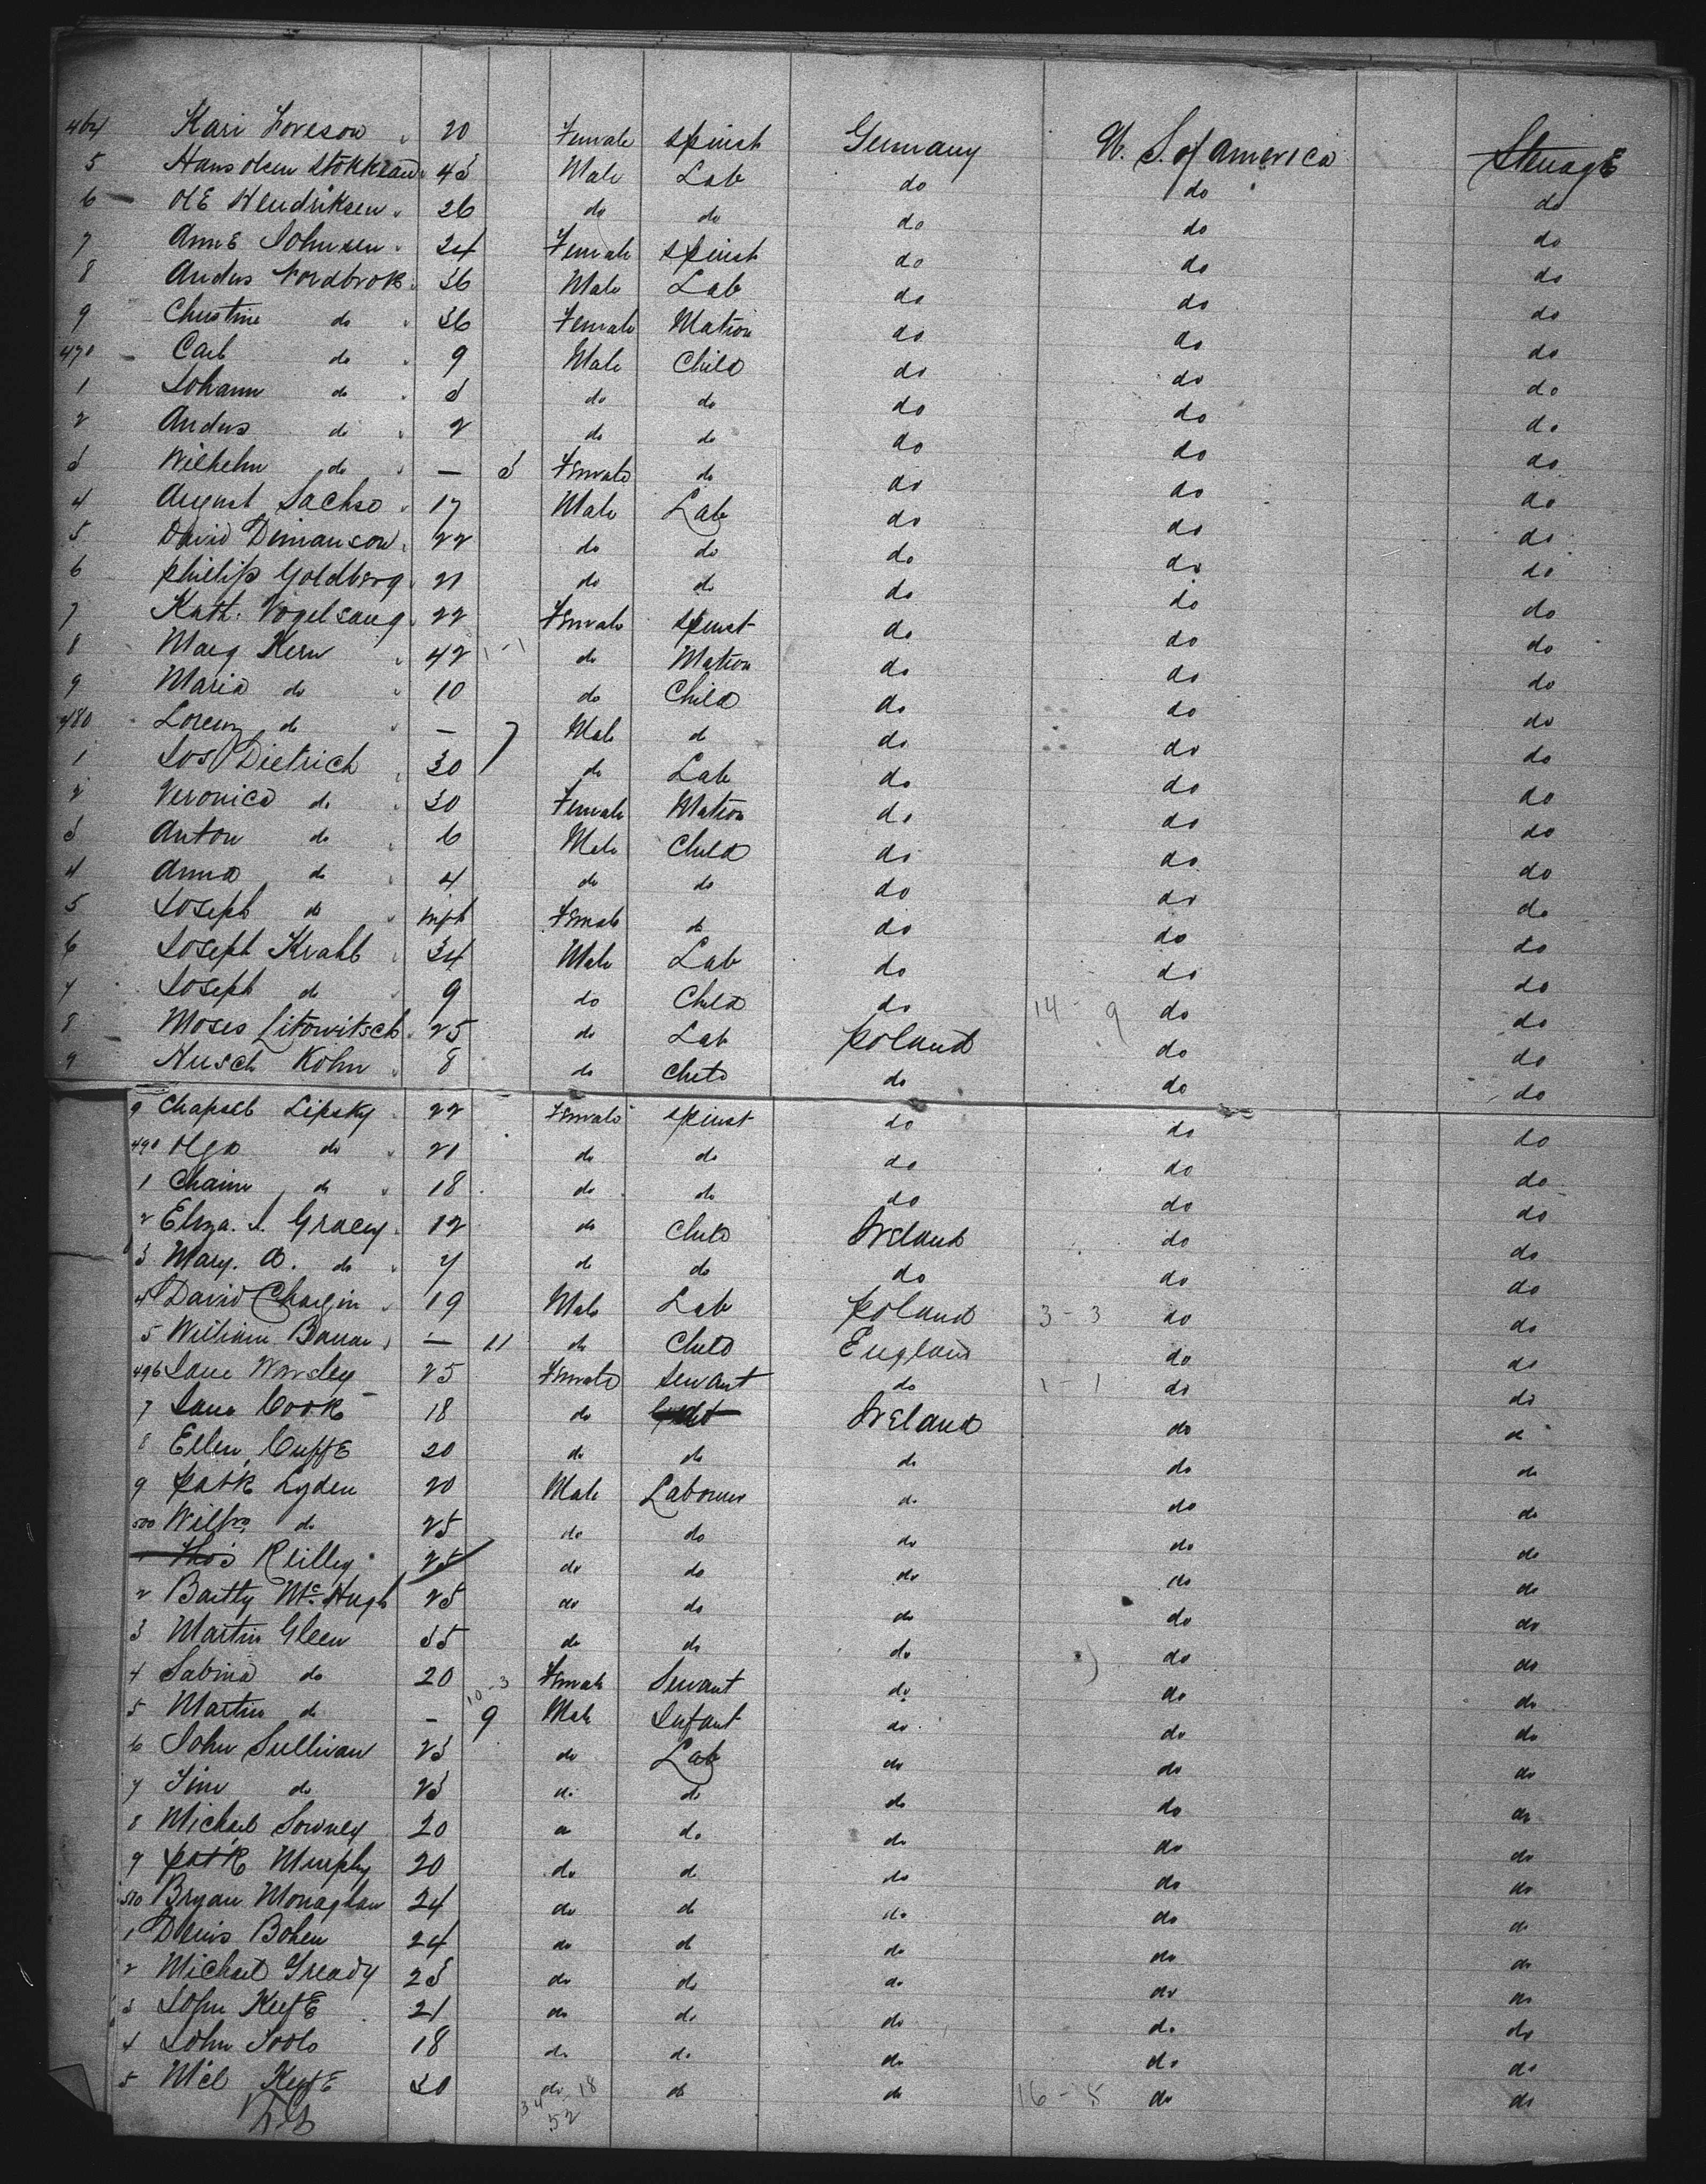 464 Kari Loveson 20 Female Spinst Germany U. S. of America Steerage
5 Hans Olsen Stokkeau 43 Male Lab do do do
6 Ole Hendriksen 26 do do do do do
7 Anne Johnsen 24 Female Spinst do do do
8 Andus Nordbrok 36 Male Lab do do do
9 Christine do 36 Female Matron do do do
470 Carl do 9 Male Child do do do
1 Johann do 3 do do do do do
2 Andus do 2 do do do do do
3 Wilhelm do — 3 Female do do do do
4 August Sachse 17 Male Lab do do do
5 David Dimanson 22 do do do do do
6 Phillip Goldberg 21 do do do do do
7 Kath. Vogelsang 22 Female Spinst do do do
8 Marg Kern 42 1-1 do Matron do do do
9 Maria do 10 do Child do do do
480 Lorenz do — 7 Male do do do do
1 Jos Dietrich 30 do Lab do do do
2 Veronica do 30 Female Matron do do do
3 Anton do 6 Male Child do do do
4 Anna do 4 do do do do do
5 Joseph do Inft Female do do do do
6 Joseph Krahl 34 Male Lab do do do
7 Joseph do 9 do Child do 14 - 9 do do
8 Moses Litowitsch 25 do Lab Poland do do
9 Husch Kohn 8 do Child do do do
9 Chapsel Lipsky 22 Female Spinst do do do
490 Olga do 20 do do do do do
1 Chaim do 18 do do do do do
2 Eliza. J. Gracey 12 do Child Ireland do do
3 Mary. A. do 7 do do do do do
4 David Chargin 19 Male Lab Poland 3 - 3 do do
5 William Barran — 11 do Child England do do
496 Jane Worsley 25 Female Servant do 1 - 1 do do
7 Jane Cook 18 do Ireland do do
8 Ellen Cuffe 20 do do do do do
9 Patk Lyden 20 Male Labourer do do do
500 Willm do 25 do do do do do
1 Thos Reilley 25 do do do do do
2 Bartty McHugh 25 do do do do do
3 Martin Gleen 35 do do do do do
4 Sabina do 20 Female Servant do do do
5 Martin do - 10-3 9 Male Infant do do do
6 John Sullivan 23 do Lab do do do
7 Tim do 23 do do do do do
8 Michael Downey 20 do do do do do
9 Patk Murphy 20 do do do do do
510 Bryan Monaghan 24 do do do do do
1 Denis Bohen 24 do do do do do
2 Michael Gready 23 do do do do do
3 John Keefe 21 do do do do do
4 John Toole 18 do do do do do
5 Mcl Keefe 30 do do do 16 - 5 do do
34 18
52